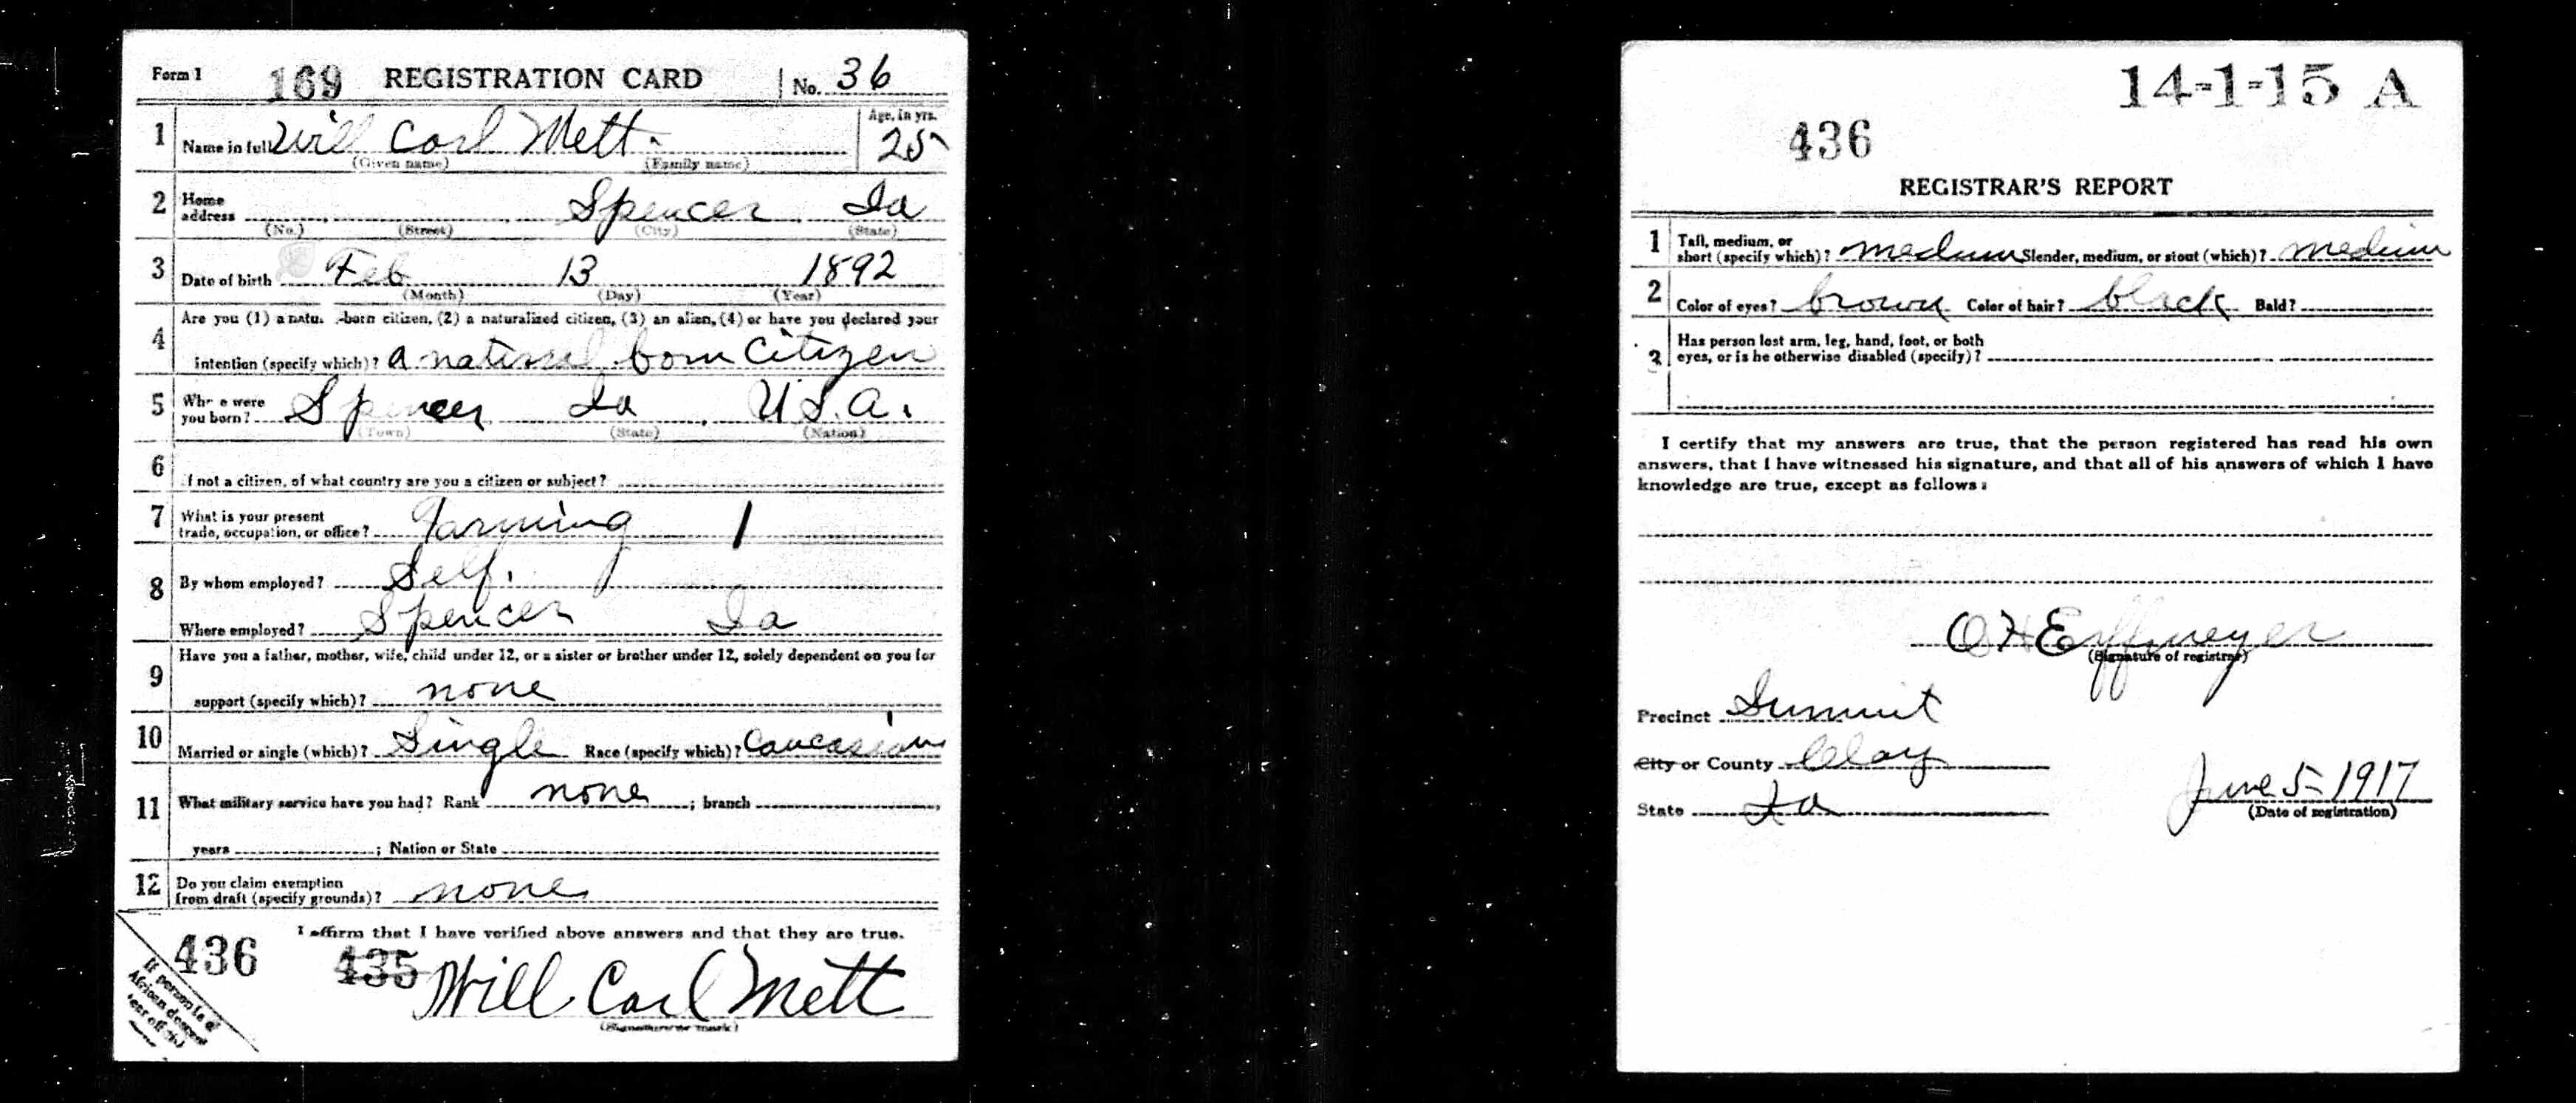 Form 1 169 REGISTRATION CARD No. 36
1 Name in full Will Carl Mett. Age, in yrs. 25
(Given name) (Family name)
2 Home address Spencer Ia
(No.) (Street) (City) (State)
3 Date of birth Feb 13 1892
(Month) (Day) (Year)
4 Are you (1) a natu -born citizen, (2) a naturalized citizen, (3) an alien, (4) or have you declared your
intention (specify which)? a natural born Citizen
5 Wh e were you born? Spencer Ia U.S.A.
(Town) (State) (Nation)
6 If not a citizen, of what country are you a citizen or subject?
7 What is your present
trade, occupation, or office? Farming 1
8 By whom employed? Self.
Where employed? Spencer Ia
9 Have you a father, mother, wife, child under 12, or a sister or brother under 12, solely dependent on you for
support (specify which)? none
10 Married or single (which)? Single Race (specify which)? Caucasian
11 What military service have you had? Rank none ; branch ,
years ; Nation or State
12 Do you claim exemption
from draft (specify grounds)? none
I affirm that I have verified above answers and that they are true.
436 435 Will Carl Mett
(Signature or mark)
If person is of
African descent
14-1-15 A
436
REGISTRAR'S REPORT
1 Tall, medium, or
short (specify which)? medium Slender, medium, or stout (which)? medium
2 Color of eyes? brown Color of hair? black Bald?
3 Has person lost arm, leg, hand, foot, or both
eyes, or is he otherwise disabled (specify)?
I certify that my answers are true, that the person registered has read his own
answers, that I have witnessed his signature, and that all of his answers of which I have
knowledge are true, except as follows:
O H Effmeyer
(Signature of registrar)
Precinct Summit
City or County Clay
State Ia
June 5-1917
(Date of registration)